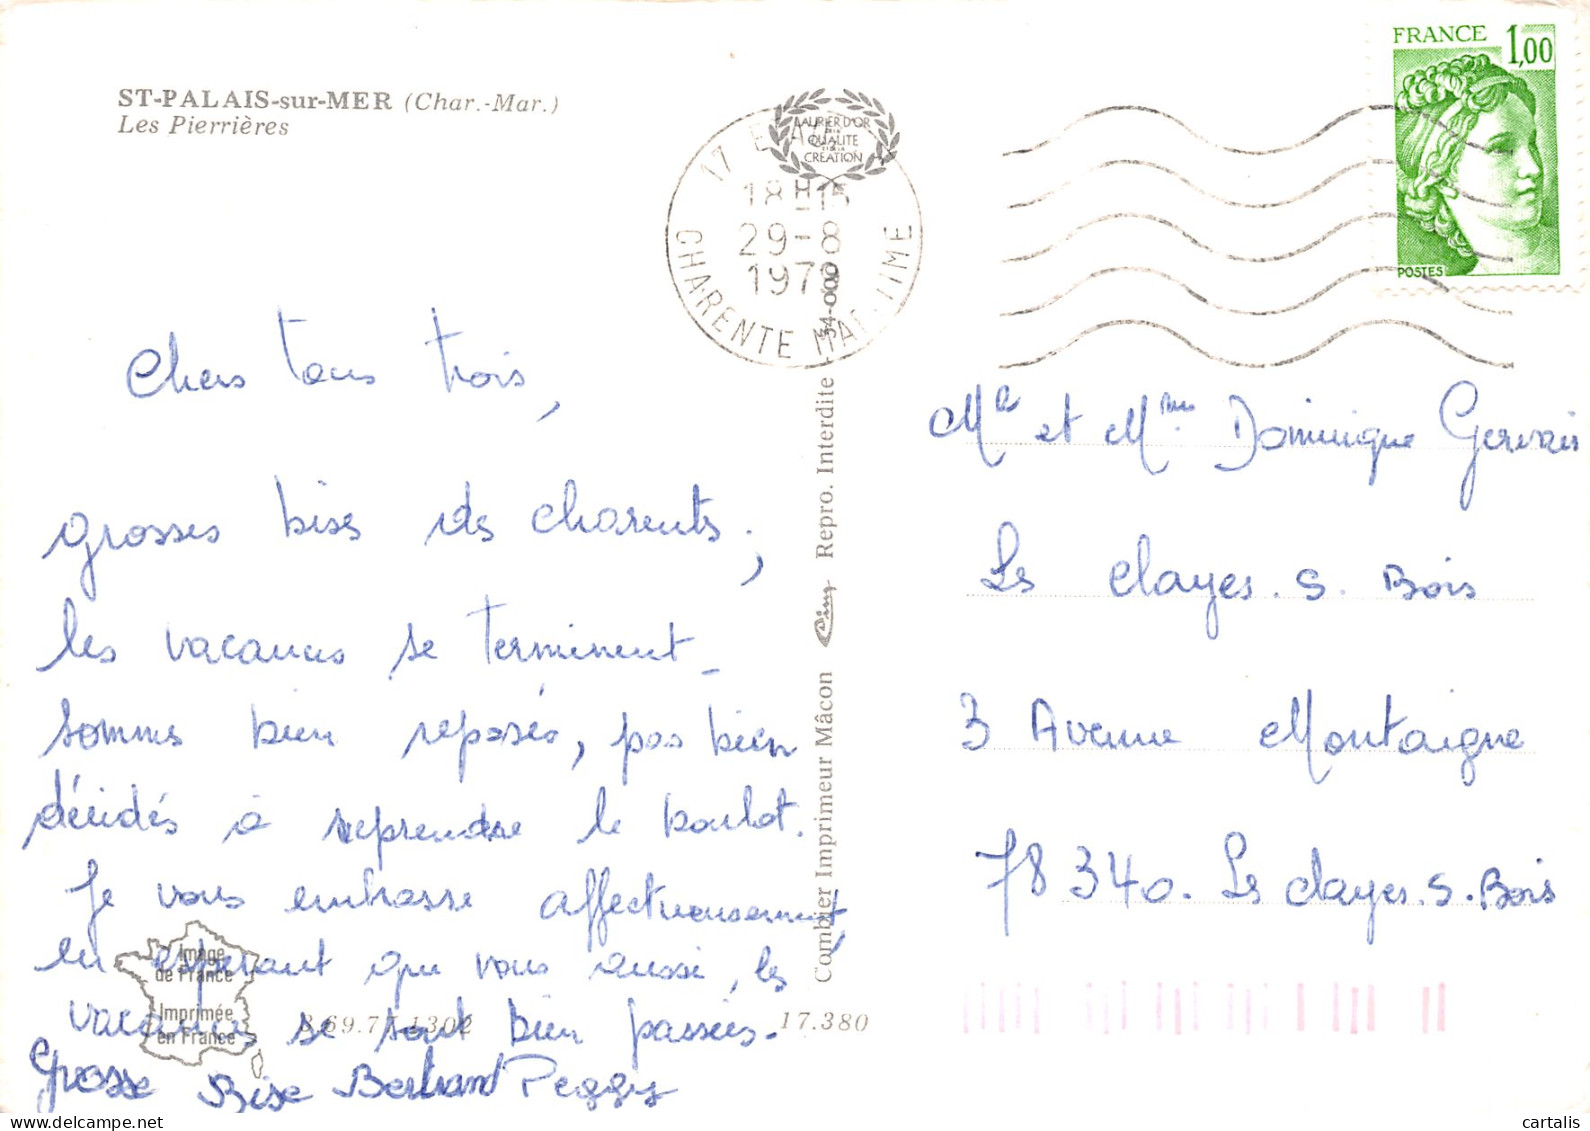 ST-PALAIS-sur-MER (Char.-Mar.)
Les Pierrières
LAURIER D'OR
DE LA
QUALITE
ET DE LA
CRÉATION
18H15
29-8
1979
CHARENTE MARITIME
FRANCE 1,00
POSTES
Chers tous trois,
grosses bises des charentes,
les vacances se terminent -
sommes bien reposés, pas bien
décidés à reprendre le boulot.
Je vous embrasse affectueusement,
en espérant que vous aussi, les
vacances se sont bien passées.
Grosse Bise Bertrand Peggy
Image
de France
Imprimée
en France
3.69.77.1302
17.380
Combier Imprimeur Mâcon Cim Repro. Interdite
Mr et Mme Dominique Gervais
Les Clayes. s. Bois
3 Avenue Montaigne
78340. Les Clayes. s. Bois
cartalis
www.delcampe.net